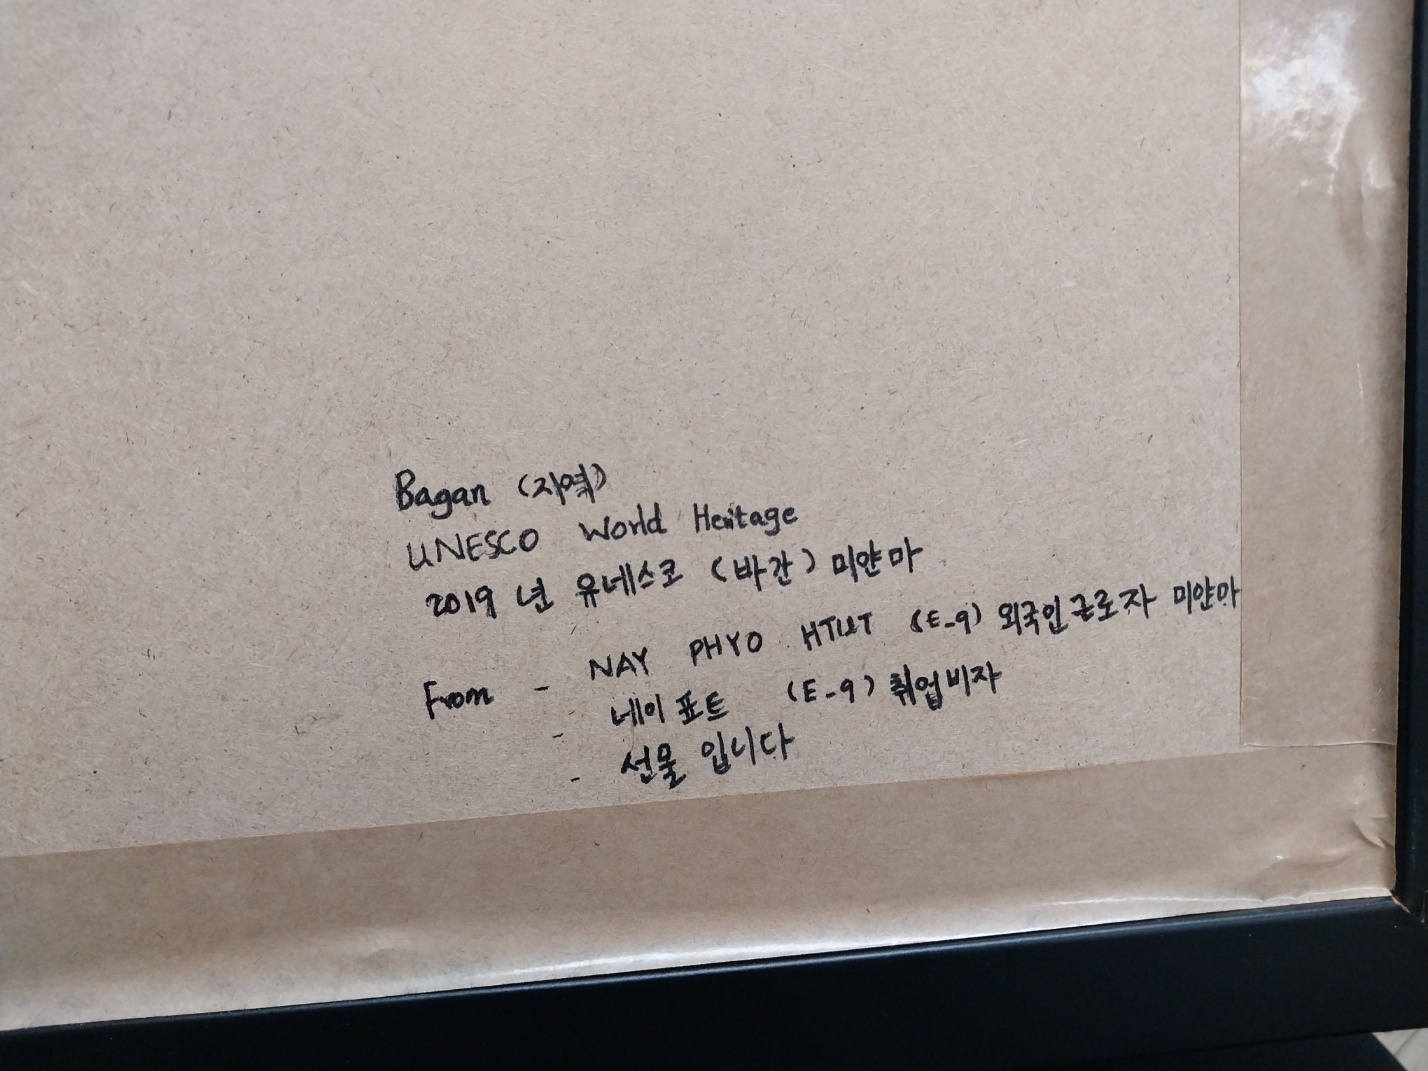 Bagan (지역)
UNESCO World Heritage
2019 년 유네스코 (바간) 미얀마
From - NAY PHYO HTUT (E-9) 외국인근로자 미얀마
- 네이표트 (E-9) 취업비자
- 선물 입니다